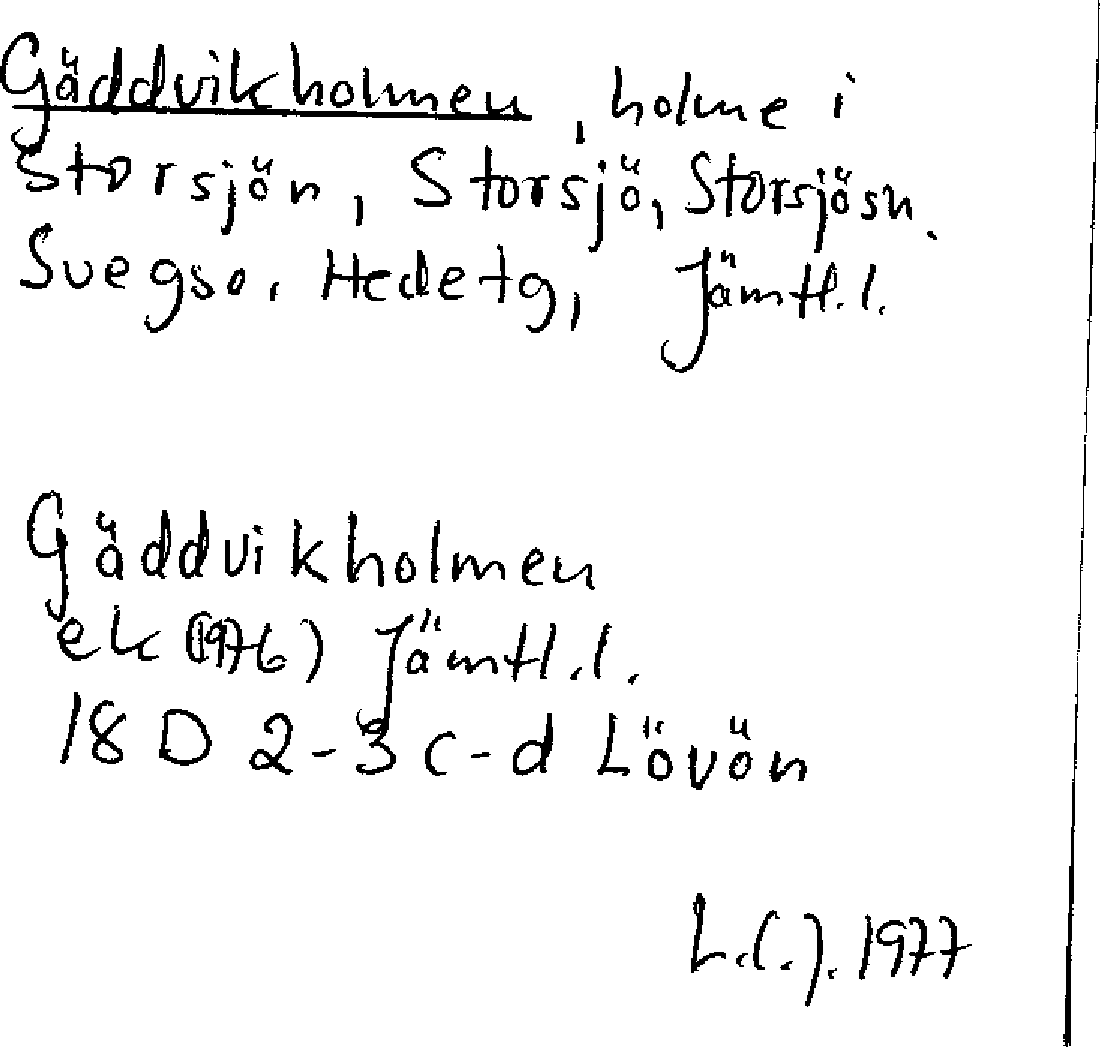 Gäddvikholmen, holme i
Storsjön, Storsjö, Storsjösn.
Svegso, Hedetg, Jämtl.l.
Gäddvikholmen
ek (1976) Jämtl.l.
18 D 2-3 c-d Lövön
L.C.J. 1977